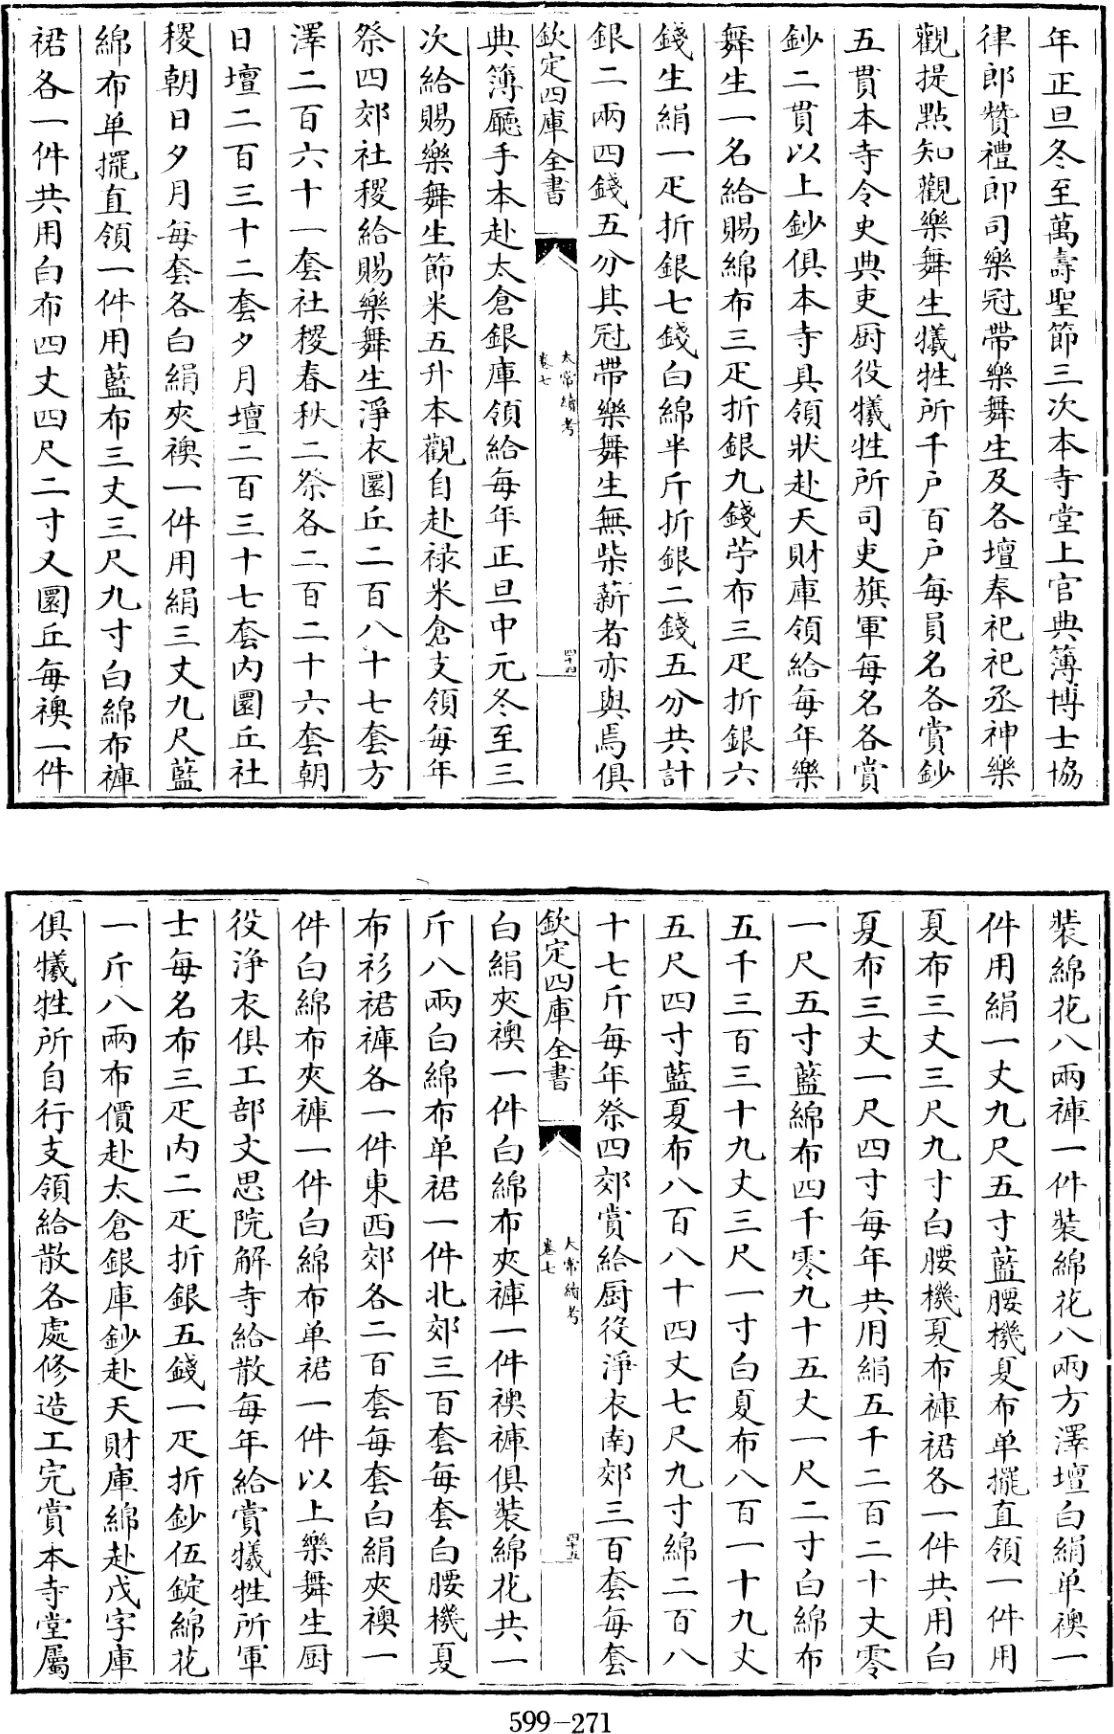 年正旦冬至萬壽聖節三次本寺堂上官典簿博士協
律郎贊禮郎司樂冠帶樂舞生及各壇奉祀祀丞神樂
觀提點知觀樂舞生犧牲所千戶百戶每員名各賞鈔
五貫本寺令史典吏厨役犧牲所司吏旗軍每名各賞
鈔二貫以上鈔俱本寺具領狀赴天財庫領給每年樂
舞生一名給賜綿布三疋折銀九錢苧布三疋折銀六
錢生絹一疋折銀七錢白綿半斤折銀二錢五分共計
銀二兩四錢五分其冠帶樂舞生無柴薪者亦與焉俱
欽定四庫全書
太常續考
卷七
四十四
典簿廳手本赴太倉銀庫領給每年正旦中元冬至三
次給賜樂舞生節米五升本觀自赴祿米倉支領每年
祭四郊社稷給賜樂舞生淨衣圜丘二百八十七套方
澤二百六十一套社稷春秋二祭各二百二十六套朝
日壇二百三十二套夕月壇二百三十七套內圜丘社
稷朝日夕月每套各白絹夾襖一件用絹三丈九尺藍
綿布单擺直領一件用藍布三丈三尺九寸白綿布褲
裙各一件共用白布四丈四尺二寸又圜丘每襖一件
裝綿花八兩褲一件裝綿花八兩方澤壇白絹单襖一
件用絹一丈九尺五寸藍腰機夏布单擺直領一件用
夏布三丈三尺九寸白腰機夏布褲裙各一件共用白
夏布三丈一尺四寸每年共用絹五千二百二十丈零
一尺五寸藍綿布四千零九十五丈一尺二寸白綿布
五千三百三十九丈三尺一寸白夏布八百一十九丈
五尺四寸藍夏布八百八十四丈七尺九寸綿二百八
十七斤每年祭四郊賞給厨役淨衣南郊三百套每套
欽定四庫全書
太常續考
卷七
四十五
白絹夾襖一件白綿布夾褲一件襖褲俱裝綿花共一
斤八兩白綿布单裙一件北郊三百套每套白腰機夏
布衫裙褲各一件東西郊各二百套每套白絹夾襖一
件白綿布夾褲一件白綿布单裙一件以上樂舞生厨
役淨衣俱工部文思院解寺給散每年給賞犧牲所軍
士每名布三疋內二疋折銀五錢一疋折鈔伍錠綿花
一斤八兩布價赴太倉銀庫鈔赴天財庫綿赴戊字庫
俱犧牲所自行支領給散各處修造工完賞本寺堂屬
599-271